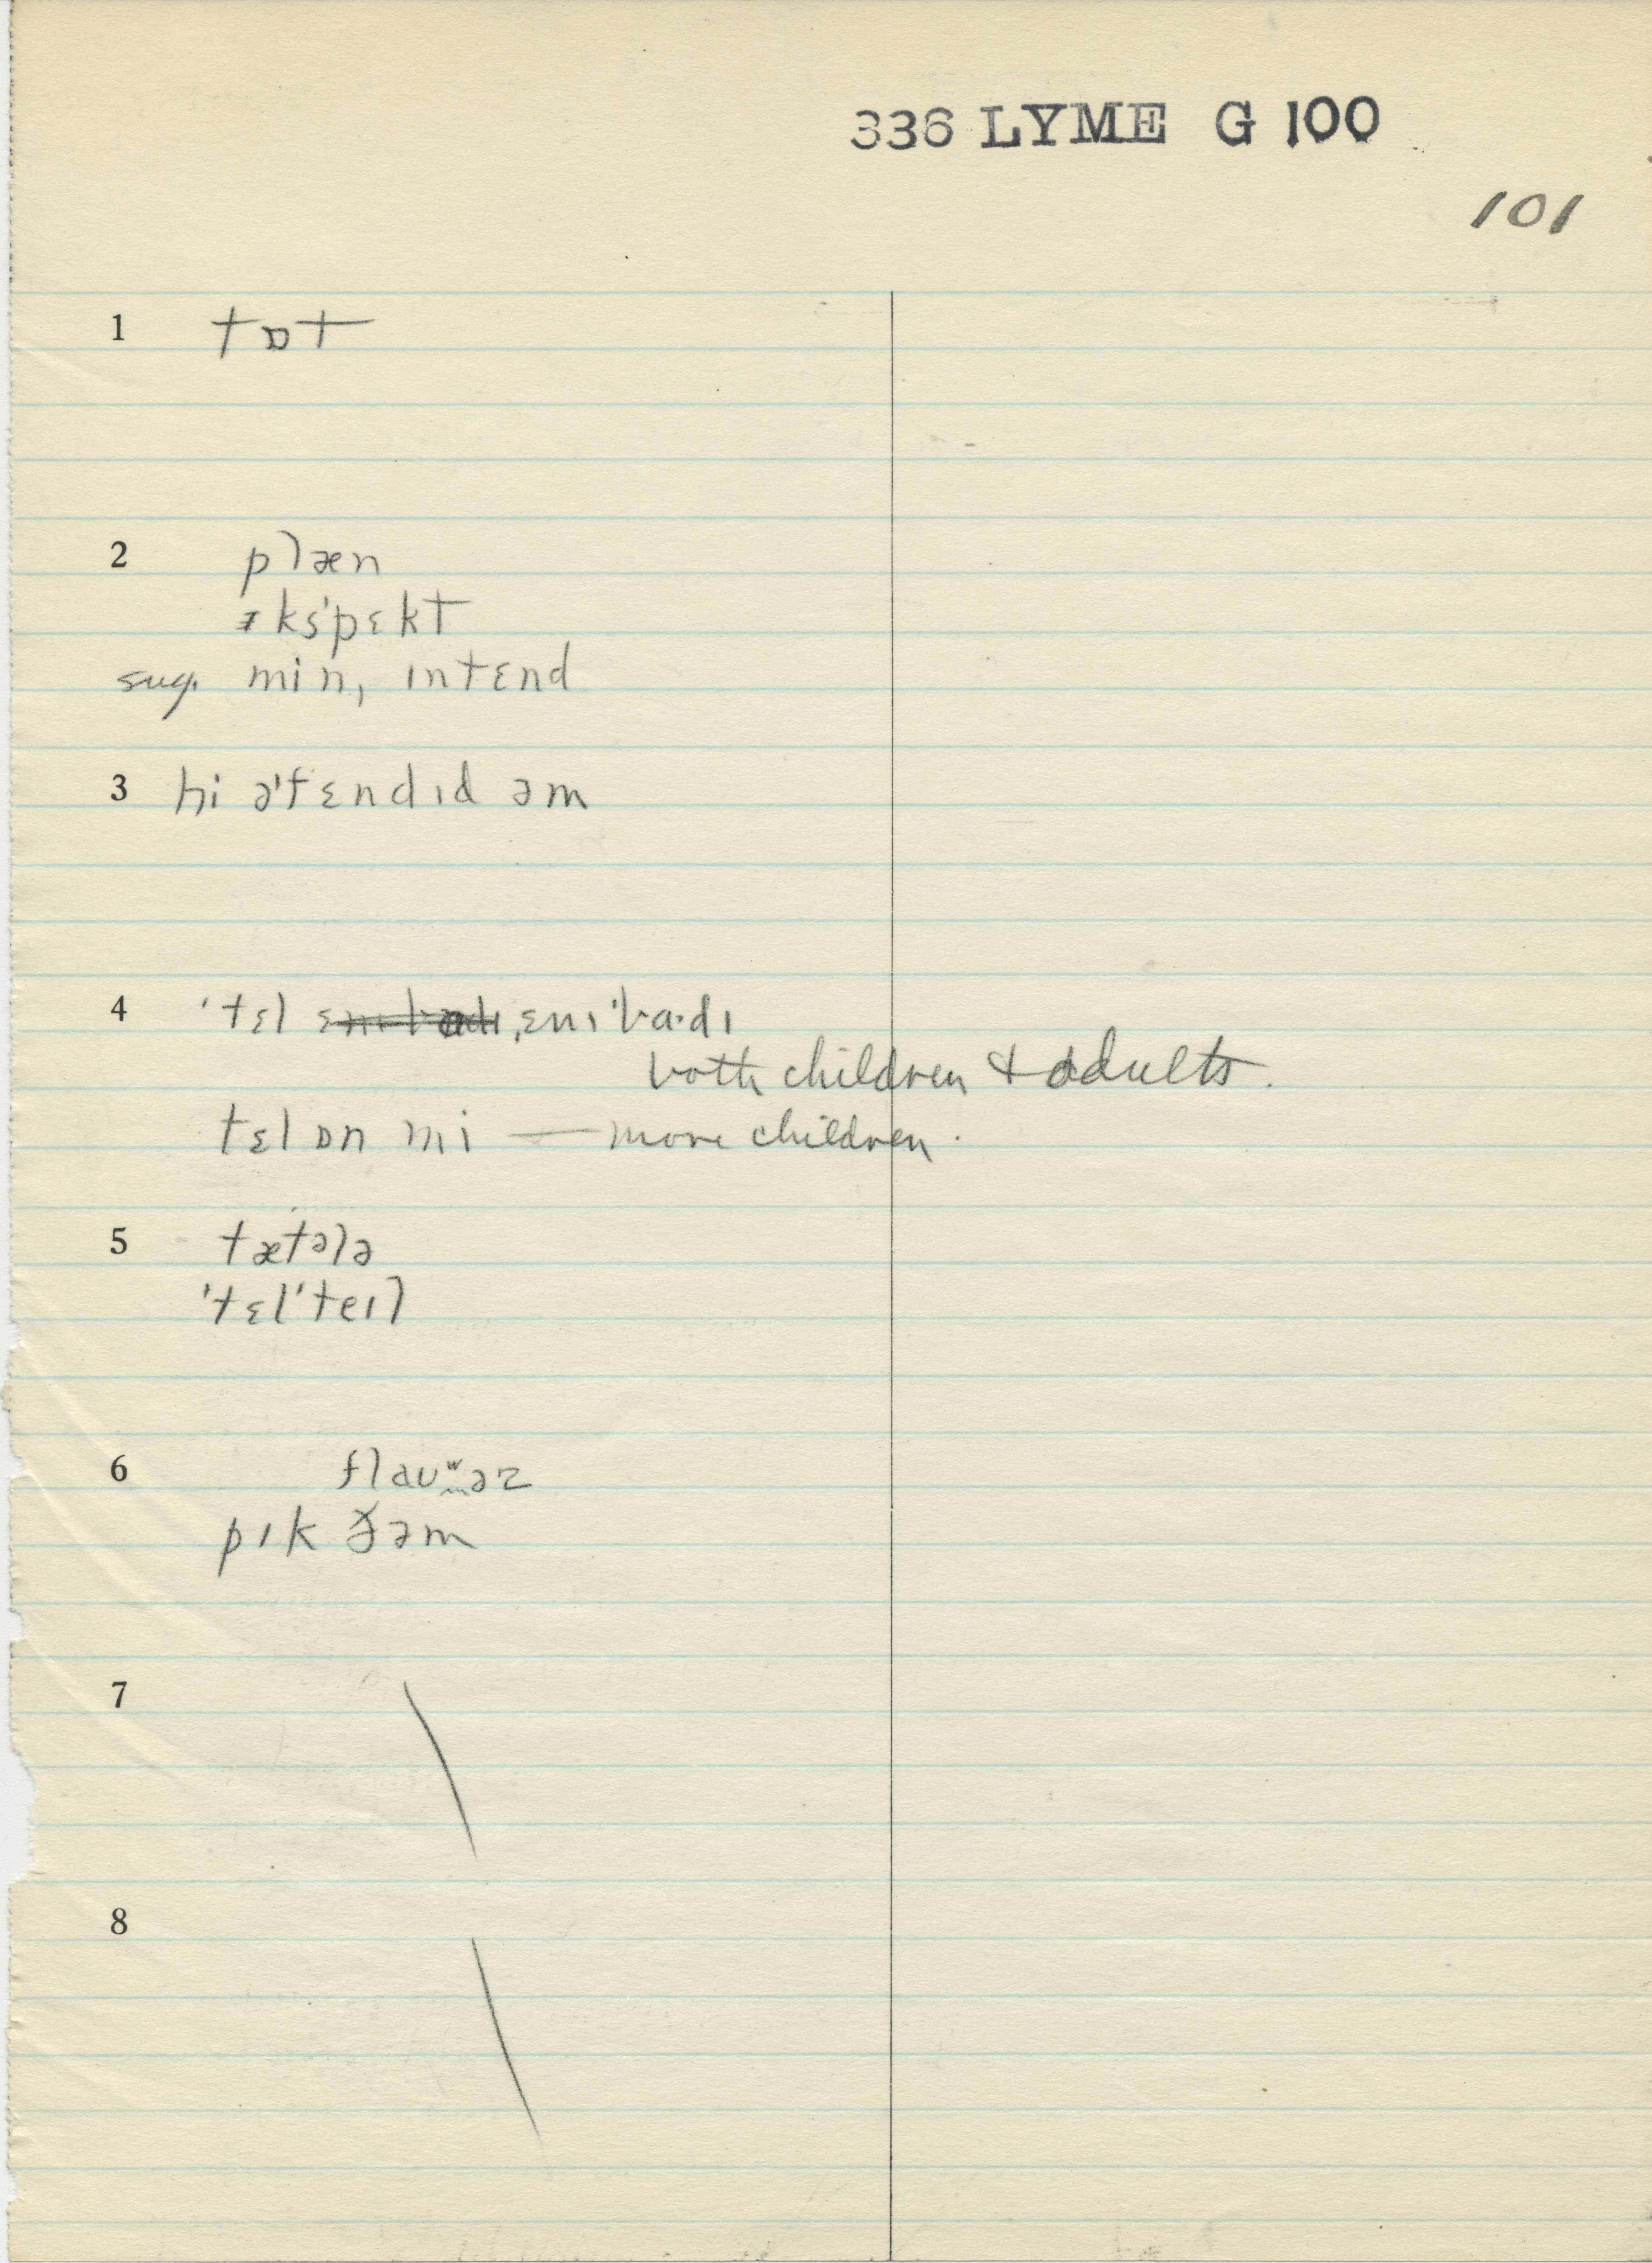 336 LYME G 100
101
1 tɒt
2 plæn
ɪksˈpɛkt
sug. min, ɪntɛnd
3 hi əˈtɛndɪd əm
4 ˈtɛl ˌɛnɪˈbɑ·dɪ
both children & adults.
tɛl ɒn mi — more children.
5 tætələ
ˈtɛlˈteɪl
6 flaʊʷəz
pɪk ðəm
7
8